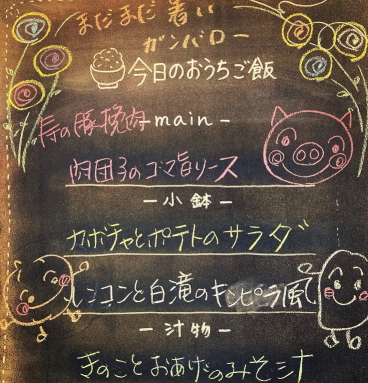 まだまだ暑い
ガンバロー
今日のおうちご飯
-main-
寿の豚挽肉
肉団子のゴマ旨ソース
-小鉢-
カボチャとポテトのサラダ
レンコンと白滝のキンピラ風
-汁物-
きのことおあげのみそ汁